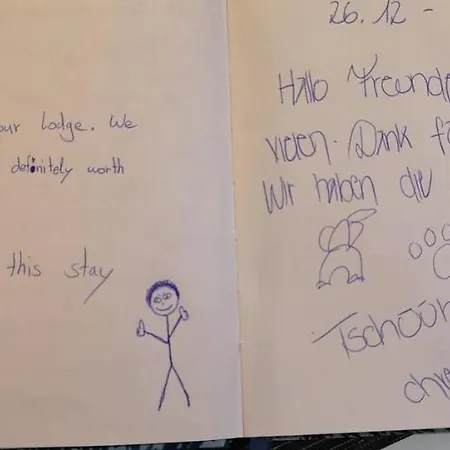 our lodge. We
definitely worth
this stay
26.12 -
Hallo Freunde
vielen Dank fü
Wir haben die
Tschüü